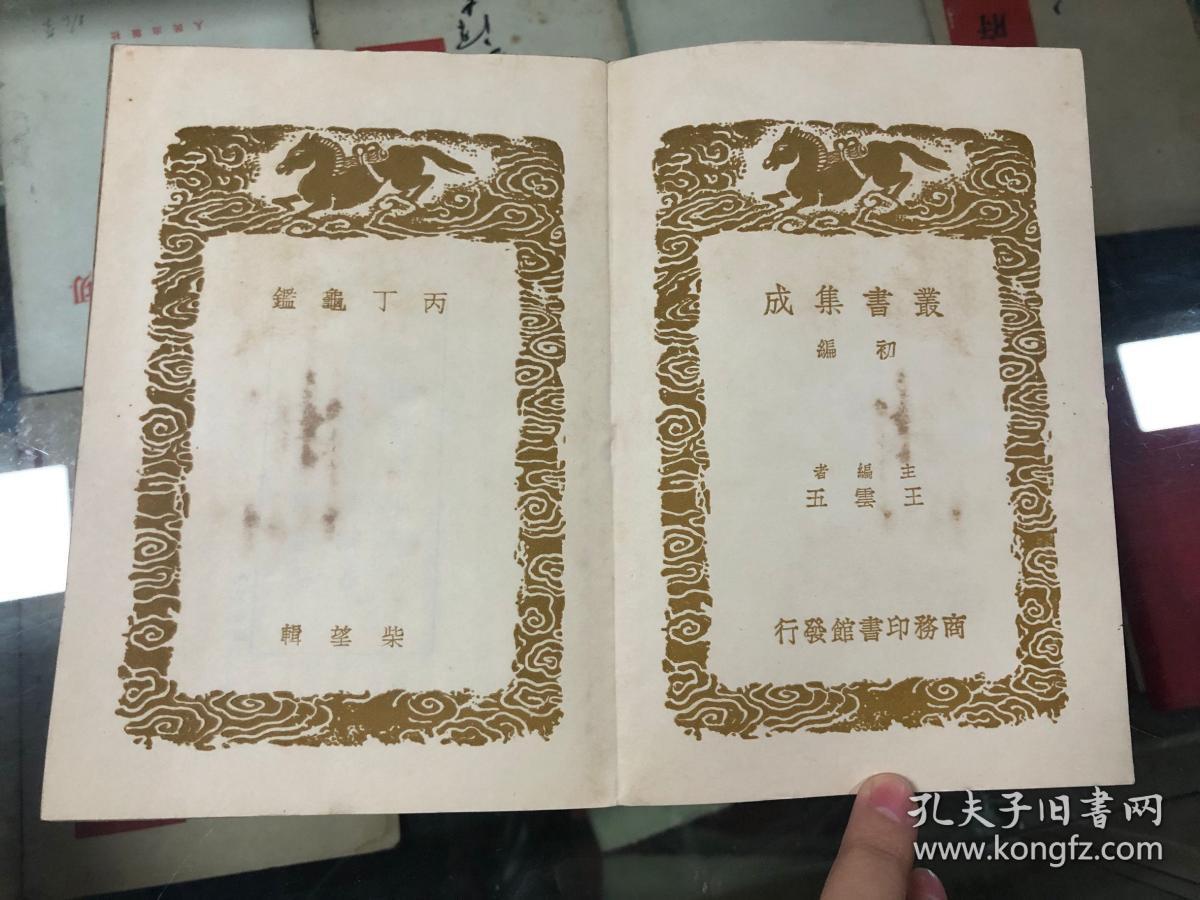 叢書集成
初編
主編者
王雲五
商務印書館發行
丙丁龜鑑
柴望輯
人民出版社
府
切
孔夫子旧书网
www.kongfz.com